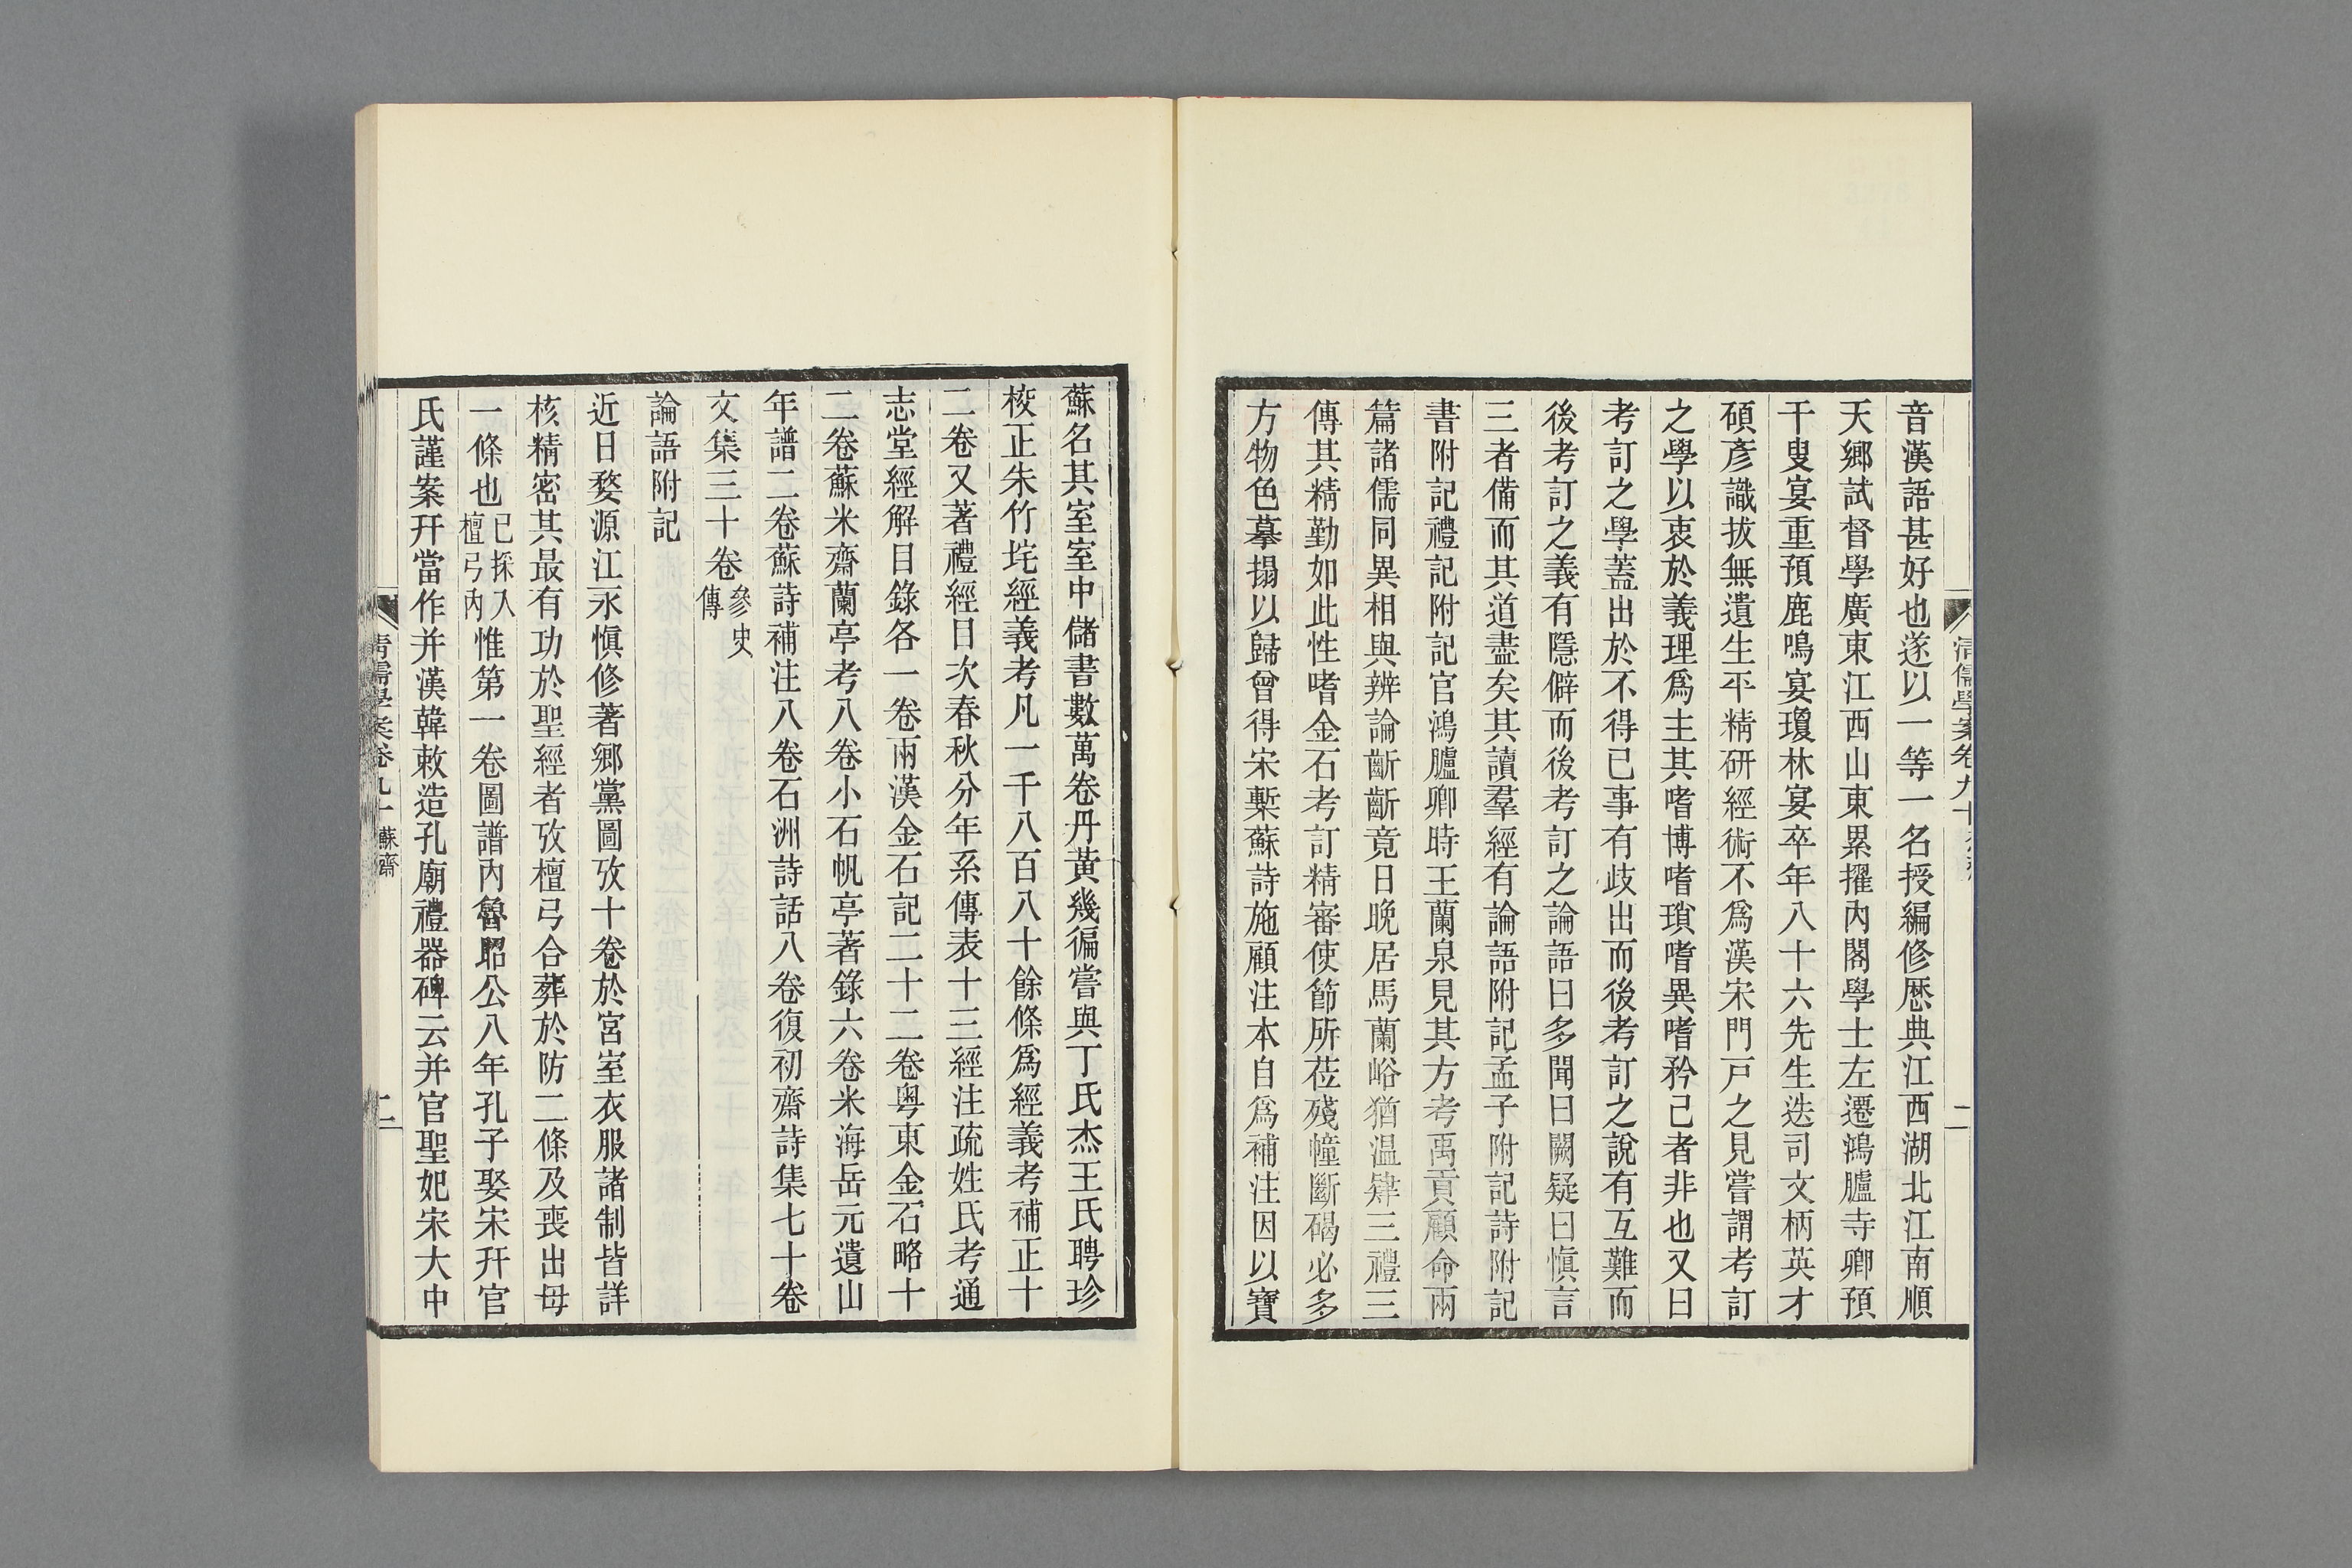 音漢語甚好也遂以一等一名授編修歷典江西湖北江南順
天鄉試督學廣東江西山東累擢內閣學士左遷鴻臚寺卿預
千叟宴重預鹿鳴宴瓊林宴卒年八十六先生迭司文柄英才
碩彥識拔無遺生平精研經術不爲漢宋門戸之見嘗謂考訂
之學以衷於義理爲主其嗜博嗜瑣嗜異嗜矜己者非也又曰
考訂之學蓋出於不得已事有歧出而後考訂之說有互難而
後考訂之義有隱僻而後考訂之論語曰多聞曰闕疑曰愼言
三者備而其道盡矣其讀羣經有論語附記孟子附記詩附記
書附記禮記附記官鴻臚卿時王蘭泉見其方考禹貢顧命兩
篇諸儒同異相與辨論齗齗竟日晚居馬蘭峪猶温肄三禮三
傳其精勤如此性嗜金石考訂精審使節所莅殘幢斷碣必多
方物色摹搨以歸曾得宋槧蘇詩施顧注本自爲補注因以寶
清儒學案卷九十
二
蘇名其室室中儲書數萬卷丹黃幾徧嘗與丁氏杰王氏聘珍
校正朱竹垞經義考凡一千八百八十餘條爲經義考補正十
二卷又著禮經目次春秋分年系傳表十三經注疏姓氏考通
志堂經解目錄各一卷兩漢金石記二十二卷粤東金石略十
二卷蘇米齋蘭亭考八卷小石帆亭著錄六卷米海岳元遺山
年譜二卷蘇詩補注八卷石洲詩話八卷復初齋詩集七十卷
文集三十卷參史傳
論語附記
近日婺源江永愼修著鄉黨圖攷十卷於宮室衣服諸制皆詳
核精密其最有功於聖經者攷檀弓合葬於防二條及喪出母
一條也已採入檀弓內惟第一卷圖譜內魯昭公八年孔子娶宋幵官
氏謹案幵當作并漢韓敕造孔廟禮器碑云并官聖妃宋大中
清儒學案卷九十 蘇齋
二